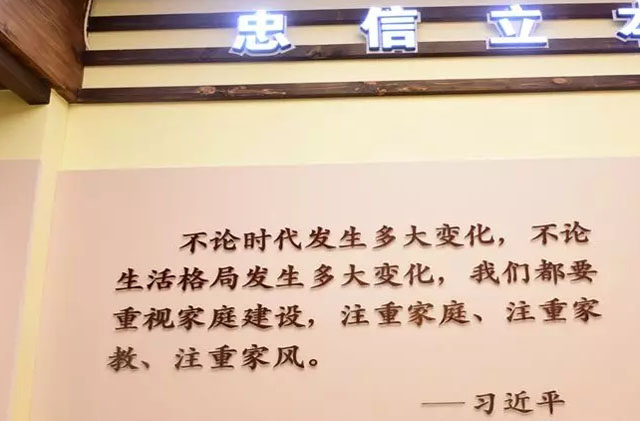 忠信立本
不论时代发生多大变化，不论
生活格局发生多大变化，我们都要
重视家庭建设，注重家庭、注重家
教、注重家风。
——习近平